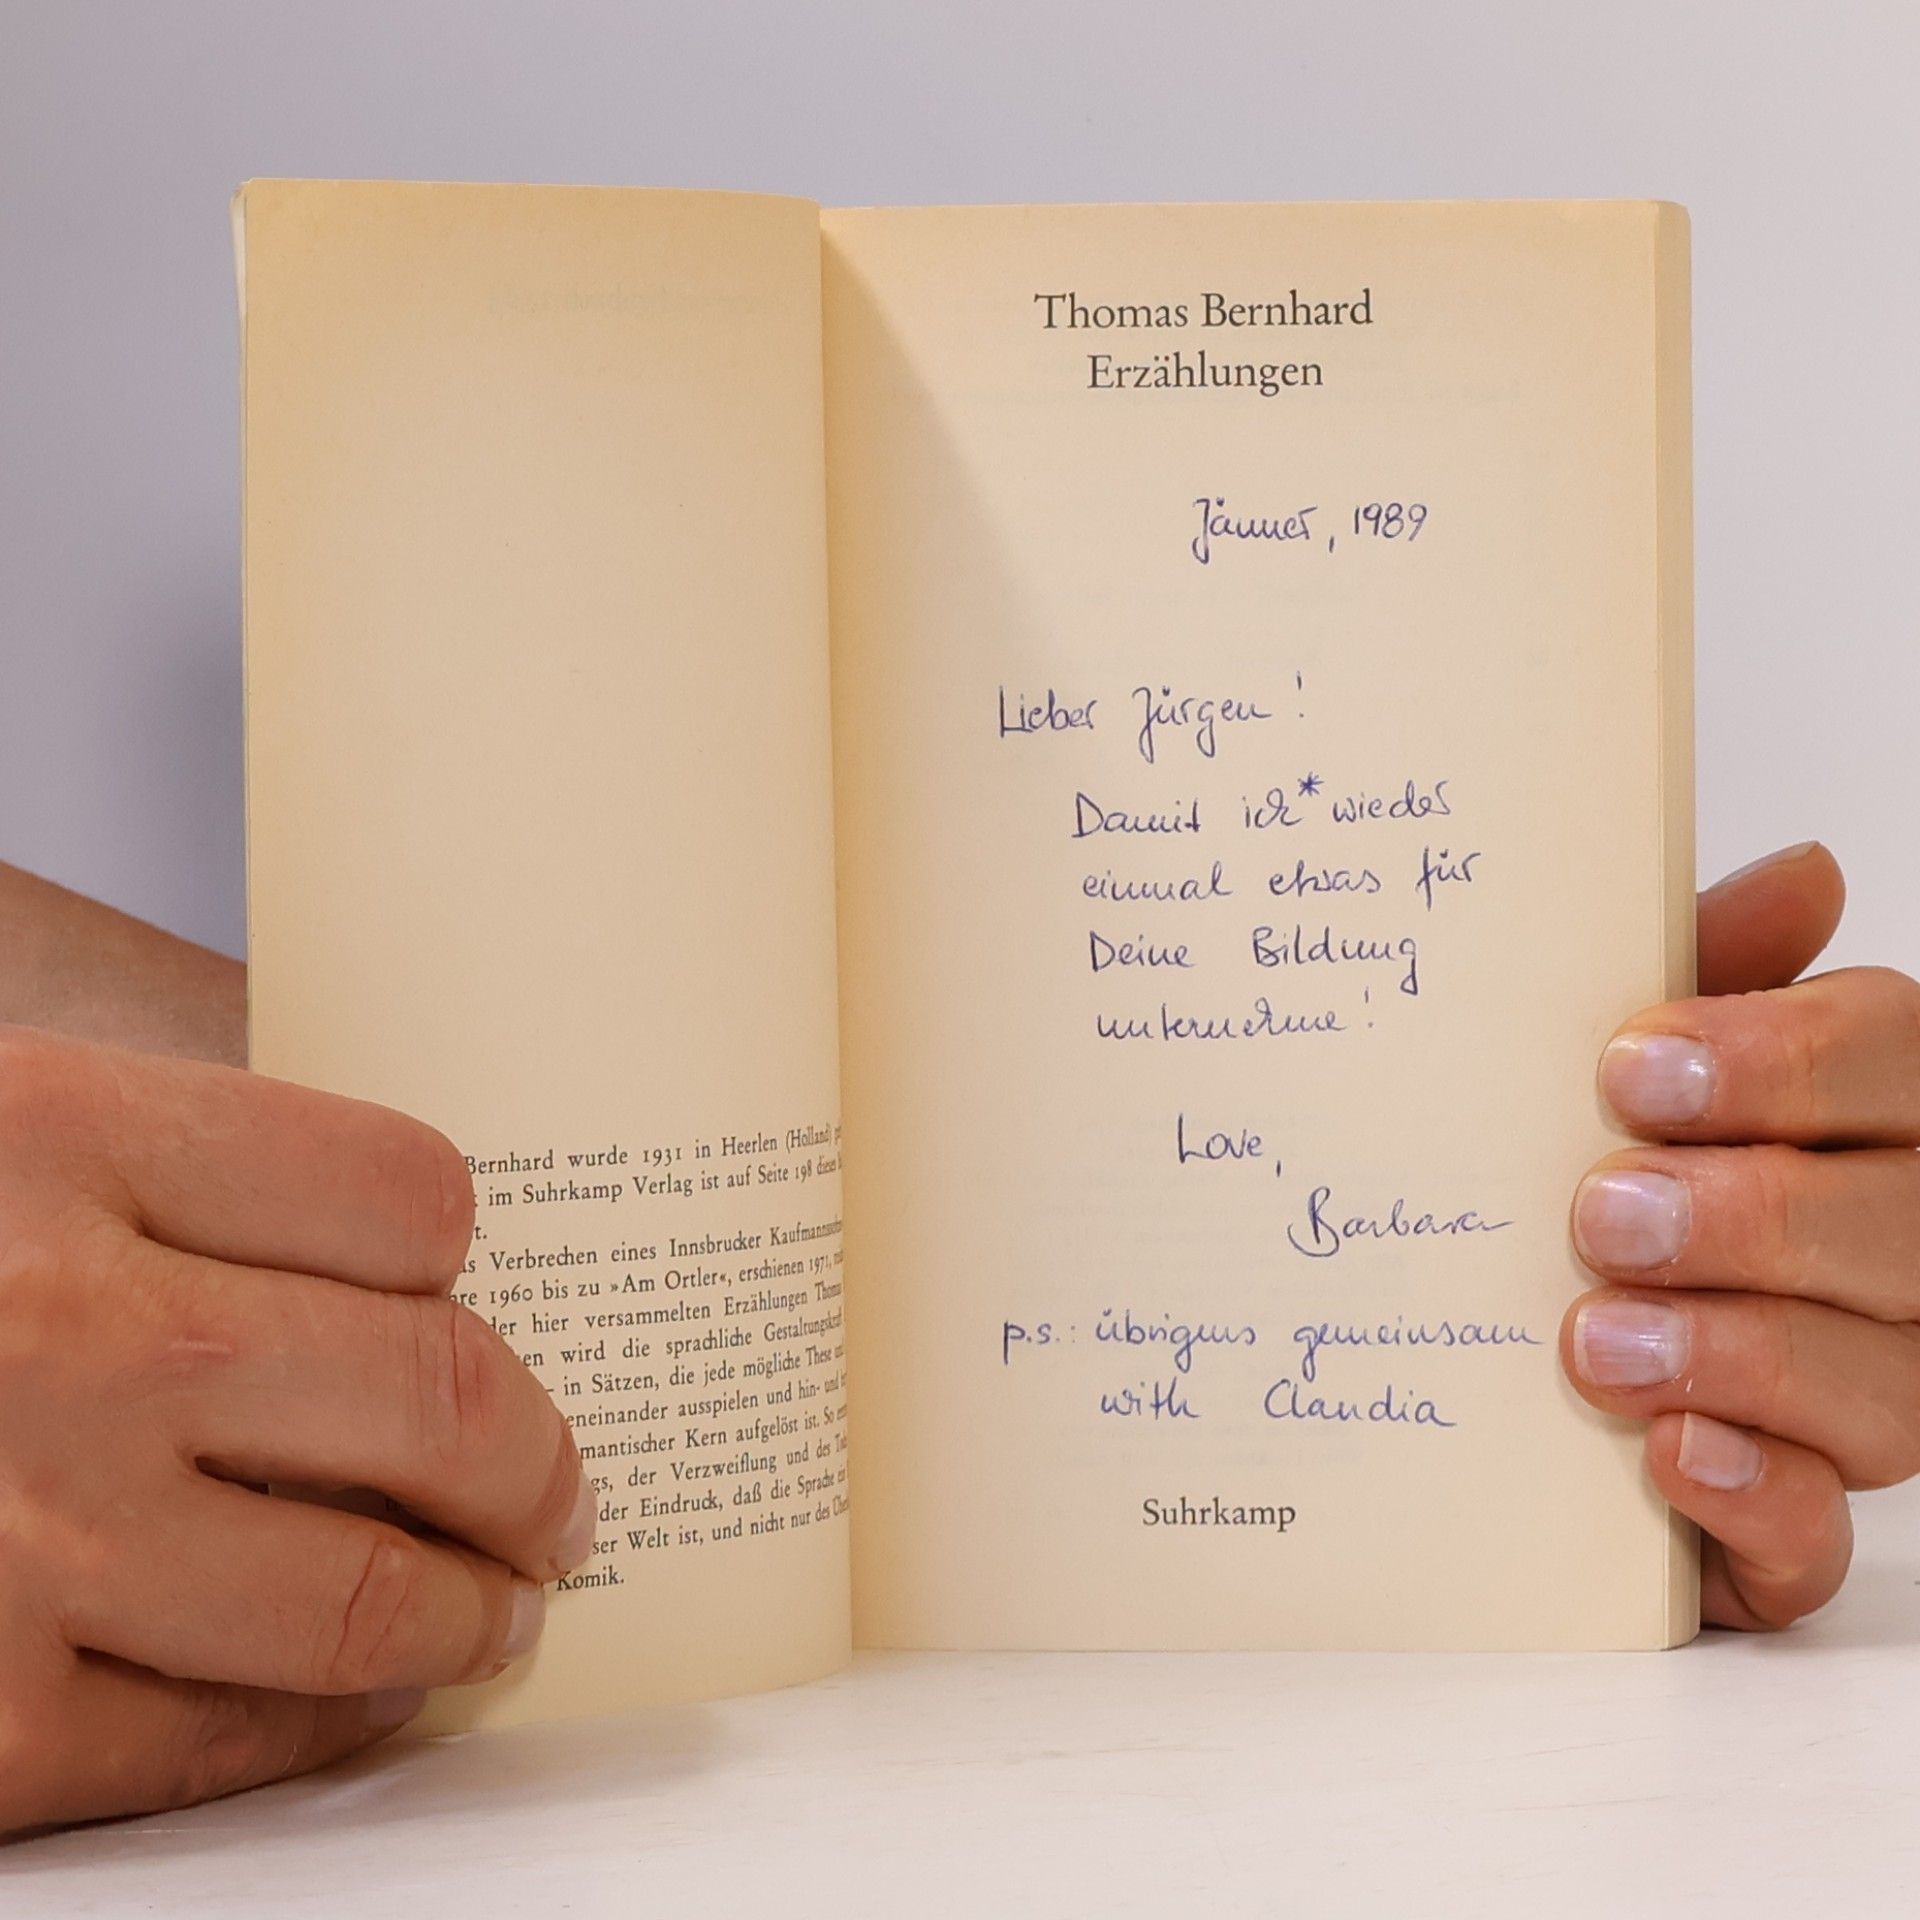 Bernhard wurde 1931 in Heerlen (Holland)
im Suhrkamp Verlag ist auf Seite 198
Verbrechen eines Innsbrucker
1960 bis zu »Am Ortler«, erschienen 1971,
hier versammelten Erzählungen
wird die sprachliche
– in Sätzen, die jede mögliche These
ausspielen und hin- und
Kern aufgelöst ist. So
der Verzweiflung und des
der Eindruck, daß die Sprache
Welt ist, und nicht nur des
Komik.
Thomas Bernhard
Erzählungen
Jänner, 1989
Lieber Jürgen!
Damit ich* wieder
einmal etwas für
Deine Bildung
unternehme!
Love,
Barbara
p.s.: übrigens gemeinsam
with Claudia
Suhrkamp